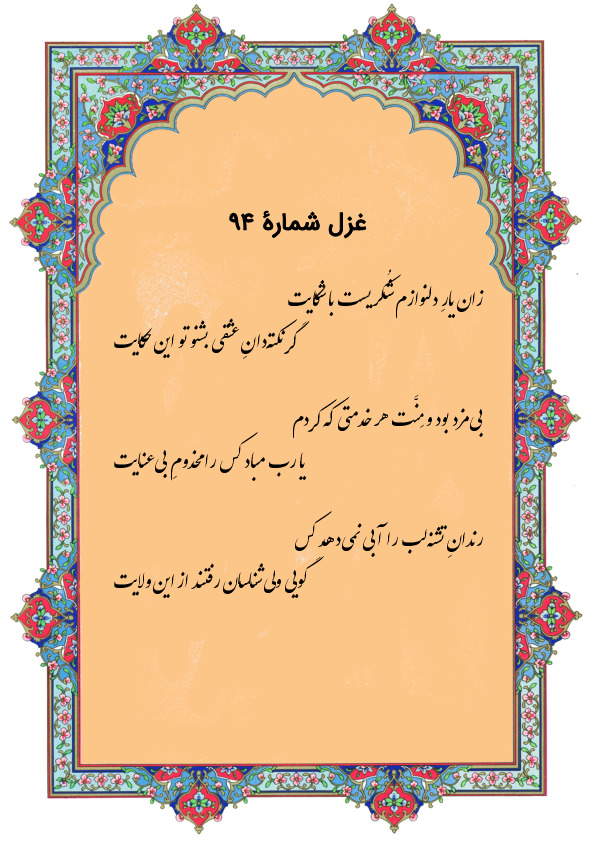 غزل شمارهٔ ۹۴
زان یارِ دلنوازم شُکریست با شکایت
گر نکته‌دانِ عشقی بشنو تو این حکایت
بی‌مزد بود و مِنَّت هر خدمتی که کردم
یا رب مباد کس را مخدومِ بی‌عنایت
رندانِ تشنه‌لب را آبی نمی‌دهد کس
گویی ولی‌شناسان رفتند از این ولایت